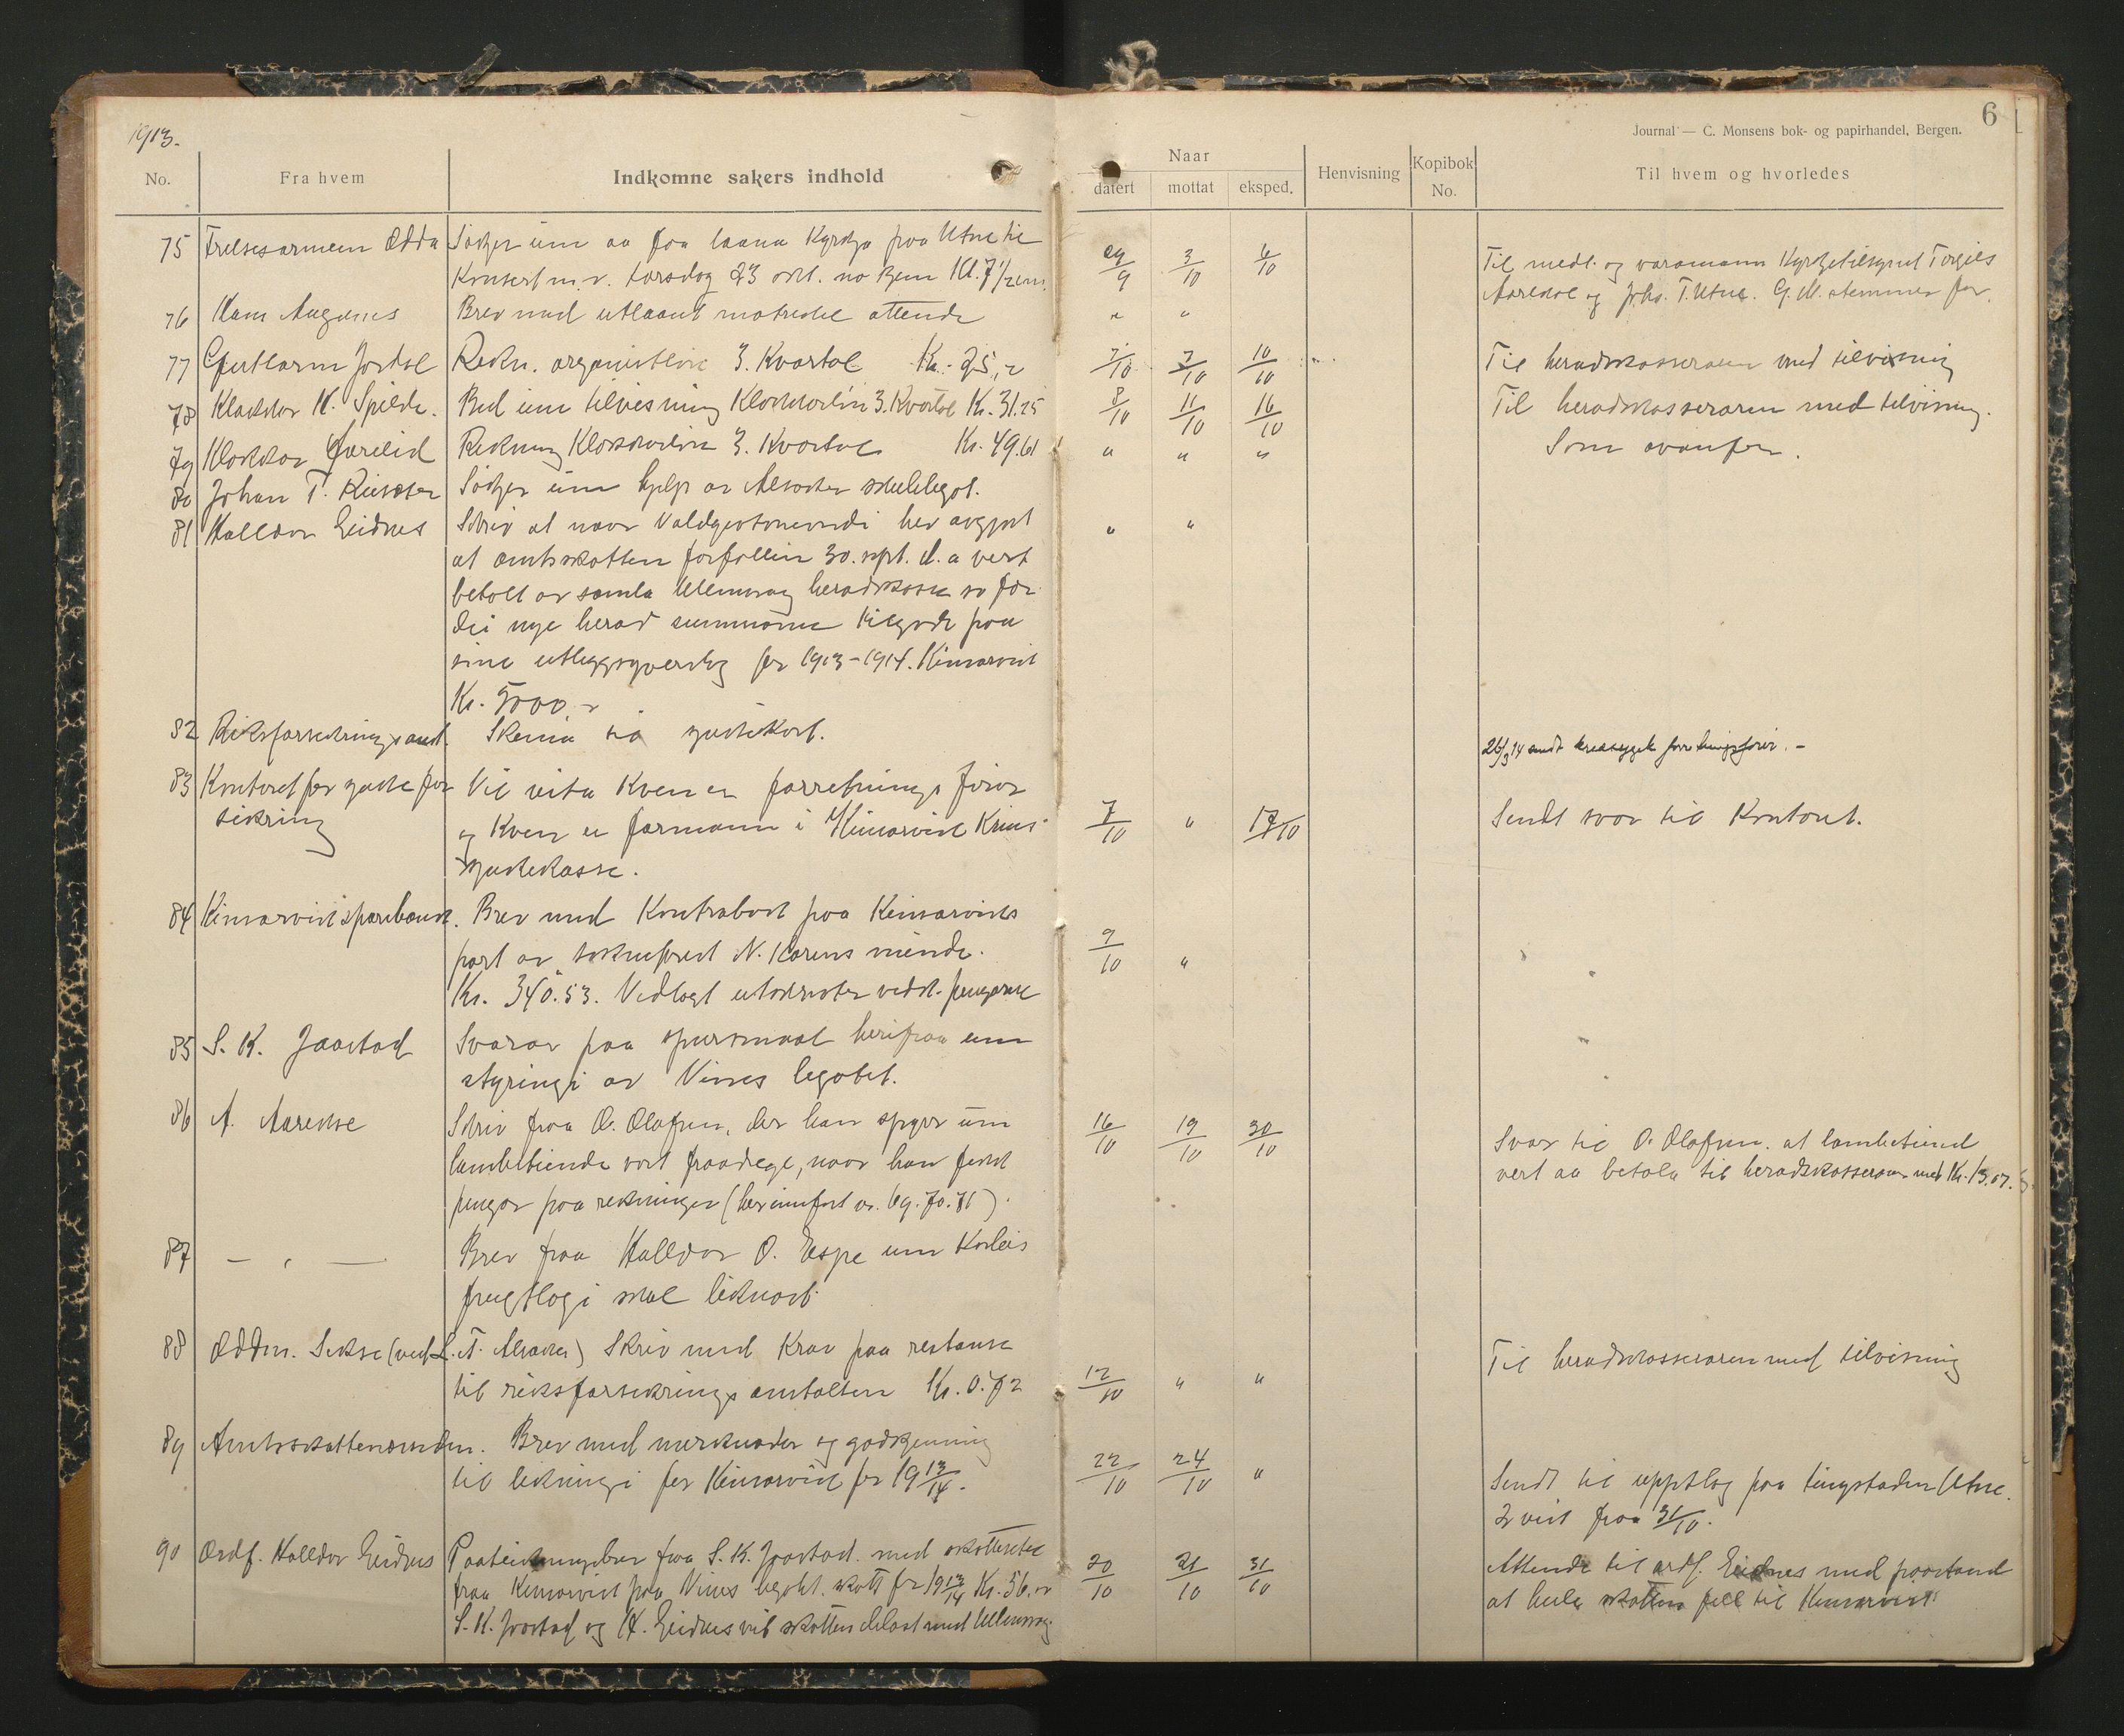 6
1913.
Journal — C. Monsens bok- og papirhandel, Bergen.
No. Fra hvem Indkomne sakers indhold Naar datert mottat eksped. Henvisning Kopibok No. Til hvem og hvorledes
75 Frelsesarmeen Odda Sökjer um aa faa laana Kyrkja paa Utne til
Konsert m.v. torsdag 23 okt. no kjem Kl. 7 1/2 em. 29/9 3/10 6/10 Til medl. og varamann Kyrkjetilsynet Torgils
Aarekol og Johs. T. Utne. G. U. stemmer for.
76 Hans Auganes Brev med utlaant attende " "
77 Jordal Rekn. organistløn 3. Kvartal Kr. 25,- 7/10 7/10 10/10 Til heradskasseraren med tilvising
78 Klokkar H. Spilde. Bed um tilvisning Klokkarløn 3. Kvartal Kr. 31.25 8/10 11/10 16/10 Til heradskasseraren med tilvising.
79 Klokkar Rekning Klokkarløn 3. Kvartal Kr. 49.61 " " " Som ovanfor.
80 Johan T. Sökjer um hjelp av Alsaker skulelegat.
81 Halldor Eidnes Skriv at naar Valdgiftsnemndi hev avgjort " "
at amtsskatten forfallin 30. sept. d. a vert
betalt av samla Ullensvang heradskasse so fær
dei nye herad summane tilgode paa
sine utleggs for 1913-1914. Kinsarvik
Kr. 5000,-
82 Riksforsikringsanst. Skema til sjukekort. 26/3 14 sendt kredssygek. forretningsförer. -
83 Kontoret for sjukefor
sikring Vil vita kven er forretnings förar
og kven er formann i Kinsarvik Krins
sjukekasse. 7/10 " 17/10 Sendt svar til Kontoret.
84 Kinsarvik sparebank. Brev med Kontrabok paa Kinsarviks
part av N. Karens minde. 9/10 "
Kr. 340.53. Vedlagt utskrifter vedk. pengarne
85 S. K. Jaastad Svarar paa spursmaal herifraa um
styringi av Vines legatet.
86 A. Aarekol Skriv fraa O. Olafsen, der han spyrr um
lambetiende vart fraadrege, naar han fekk
pengar paa rekningar (her innfört nr. 69. 70. 71). 16/10 19/10 30/10 Svar til O. Olafsen. at lambetiend
vert aa betala til heradskasseraren med Kr. 13.07.
87 — " — Brev fraa Halldor O. Espe um korleis
frugtlogi skal liknast.
88 Oddm. Sekse (ved L. T. Alsaker) Skriv med Krav paa restanse
til riksforsikrings anstalten Kr. 0.72 12/10 " " Til heradskasseraren med tilvising
89 Amtsskattenemnden. Brev med merknader og godkjenning
til likningi for Kinsarvik for 19 13/14. 22/10 24/10 " Sendt til uppslag paa tingstaden Utne.
2 vik fraa 31/10.
90 Ordf. Halldor Eidnes Paateikningsbrev fraa S. K. Jaastad. med skattesetel
fraa Kinsarvik paa Vines legatet. skatt for 19 13/14 Kr. 56.
S. K. Jaastad og H. Eidnes vil skatten delast med Ullensvang. 20/10 21/10 31/10 Attende til ordf. Eidnes med paastand
at heile skatten fell til Kinsarvik